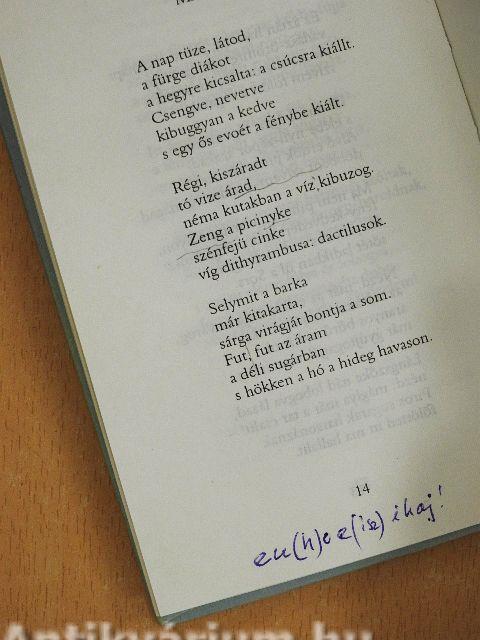 A nap tüze, látod,
a fürge diákot
a hegyre kicsalta: a csúcsra kiállt.
Csengve, nevetve
kibuggyan a kedve
s egy ős evoét a fénybe kiált.
Régi, kiszáradt
tó vize árad,
néma kutakban a víz kibuzog.
Zeng a picinyke
szénfejű cinke
víg dithyrambusa: dactilusok.
Selymit a barka
már kitakarta,
sárga virágját bontja a som.
Fut, fut az áram
a déli sugárban
s hökken a hó a hideg havason.
14
Antikvárium.hu